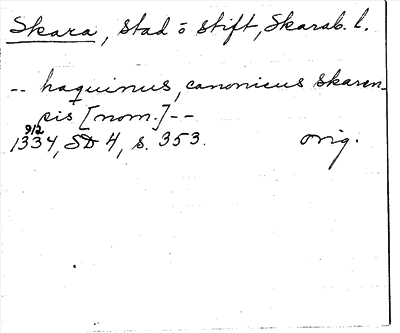 Skara, stad o stift, Skarab. l.
-- haquinus, canonicus skaren-
sis [nom.] --
9/2
1334, SD 4, s. 353. orig.